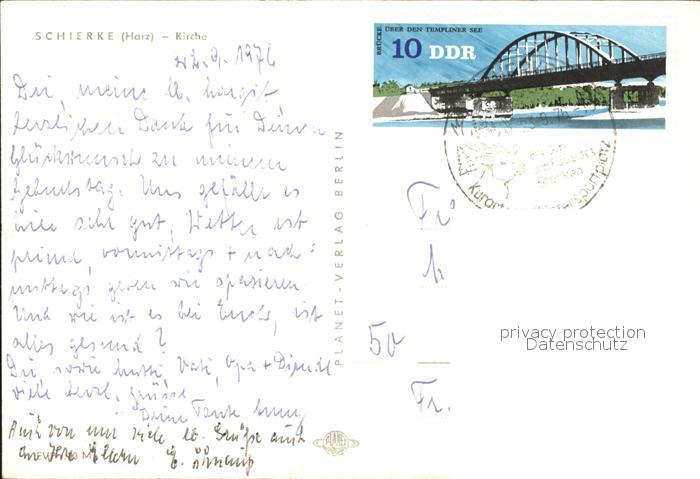 SCHIERKE (Harz) – Kirche
22.9.1976
Dir, meine lb. Margit,
herzlichen Dank für Deinen
Glückwunsch zu meinem
Geburtstag. Uns gefällt es
hier sehr gut, Wetter ist
prima, vormittags + nach-
mittags gehen wir spazieren.
Und wie ist es bei Euch, ist
alles gesund?
Dir sowie Mutti, Vati, Opa +
viele herzl. Grüsse
Deine Tante
Auch von mir viele lb. Grüße auch
an Eltern
PLANET-VERLAG BERLIN
PLANET
BRÜCKE ÜBER DEN TEMPLINER SEE
10 DDR
Kurort
Brocken
Fr.
50
Fr.
privacy protection
Datenschutz